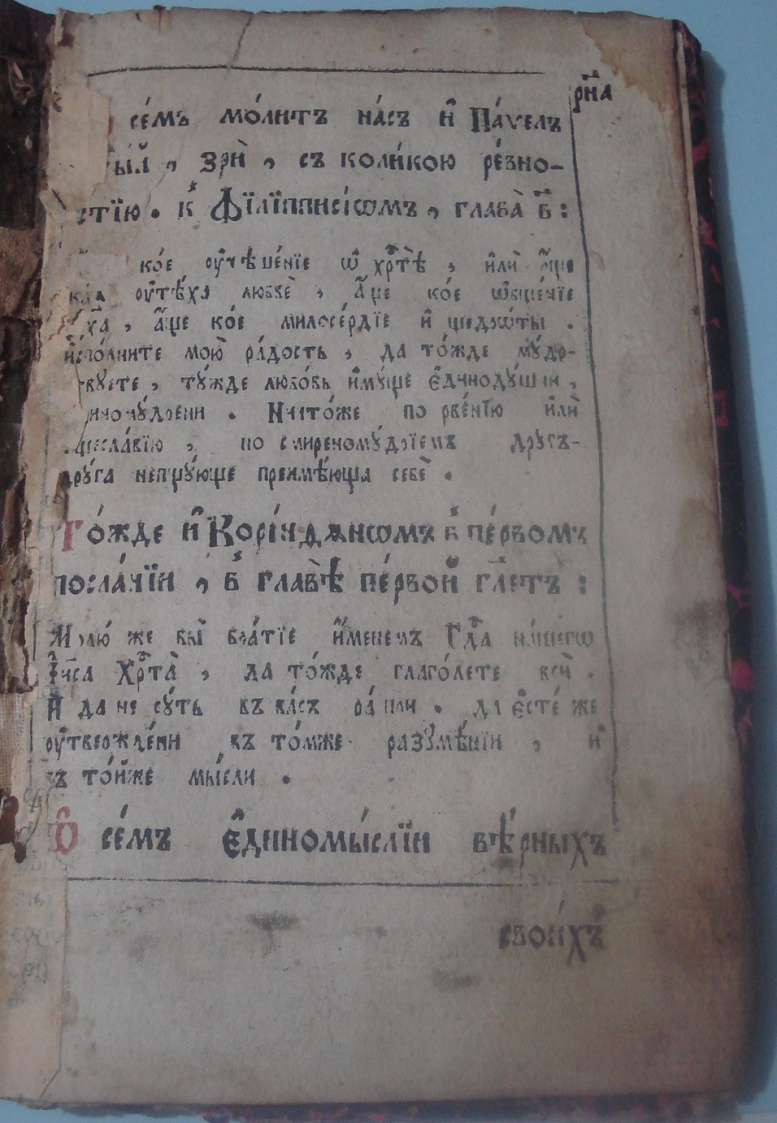 рн҃а
сє́мъ мо́литъ на́съ и҆ Па́ѵелъ
зрѝ , съ коли́кою ре́вно-
стїю . к̾ Фїлїпписі́ѡмъ , глава̀ в҃ :
ко́е ѹ҆тѣше́нїе ѡ҆ хрⷭ҇тѣ̀ , и҆лѝ а҆́ще
ка́ѧ ѹ҆тѣ́ха любвѐ , а҆́ще ко́е ѻ҆бще́нїе
дх҃а , а҆́ще ко́е милосе́рдїе и҆ щедрѡ́ты .
и҆спо́лните мою̀ ра́дость , да то́жде мꙋ́др-
ствꙋете , тꙋ́жде любо́вь и҆мꙋ́ще є҆динодꙋ́шни ,
є҆диномꙋ́дрени . Ничто́же по рве́нїю и҆лѝ
тщесла́вїю , но смиреномꙋ́дрїемъ дрꙋгъ-
дрꙋ́га непщꙋ́юще преимѣ́юща себѐ .
То́жде и҆ Корі́нѳѧнѡмъ в̾ пе́рвомъ
посла́нїи , в̾ главѣ̀ пе́рвой гл҃етъ :
Молю́ же вы̀ бра́тїе и҆́менемъ Гдⷭ҇а на́шегѡ
І҆и҃са Хрⷭ҇та̀ , да то́жде глаго́лете всѝ .
И҆ да не сꙋ́ть въ ва́съ ра́спри . да є҆сте́ же
ѹ҆твержде́ни въ то́мже разꙋмѣ́нїи , и҆
въ то́йже мы́сли .
Ѡ҆ се́мъ є҆диномы́слїи вѣ́рныхъ
свои́хъ